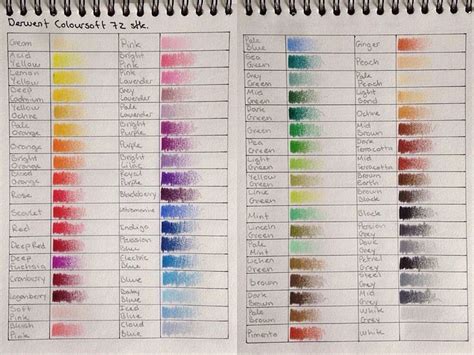 Derwent Coloursoft 72 stk.
Cream
Pink
Acid
Yellow
Bright
Pink
Lemon
Yellow
Pink
Lavender
Deep
Cadmium
Grey
Lavender
Yellow
Ochre
Pale
Lavender
Pale
Orange
Bright
Purple
Orange
Purple
Bright
Orange
Bright
Lilac
Blood
Orange
Royal
Purple
Rose
Blackberry
Scarlet
Ultramarine
Red
Indigo
Deep Red
Prussian
Blue
Deep
Fuchsia
Electric
Blue
Cranberry
Blue
Loganberry
Baby
Blue
Soft
Pink
Iced
Blue
Blush
Pink
Cloud
Blue
Pale
Blue
Ginger
Sea
Green
Peach
Grey
Green
Pale
Peach
Mid
Green
Light
Sand
Dark
Green
Ochre
Green
Mid
Brown
Pea
Green
Dark
Terracotta
Light
Green
Mid
Terracotta
Yellow
Green
Brown
Earth
Lime
Green
Brown
Black
Mint
Black
Lincoln
Green
Persian
Grey
Pale
Mint
Dove
Grey
Lichen
Green
Petrel
Grey
Brown
Steel
Grey
Dark
Brown
Mid
Grey
Pale
Brown
White
Grey
Pimento
White